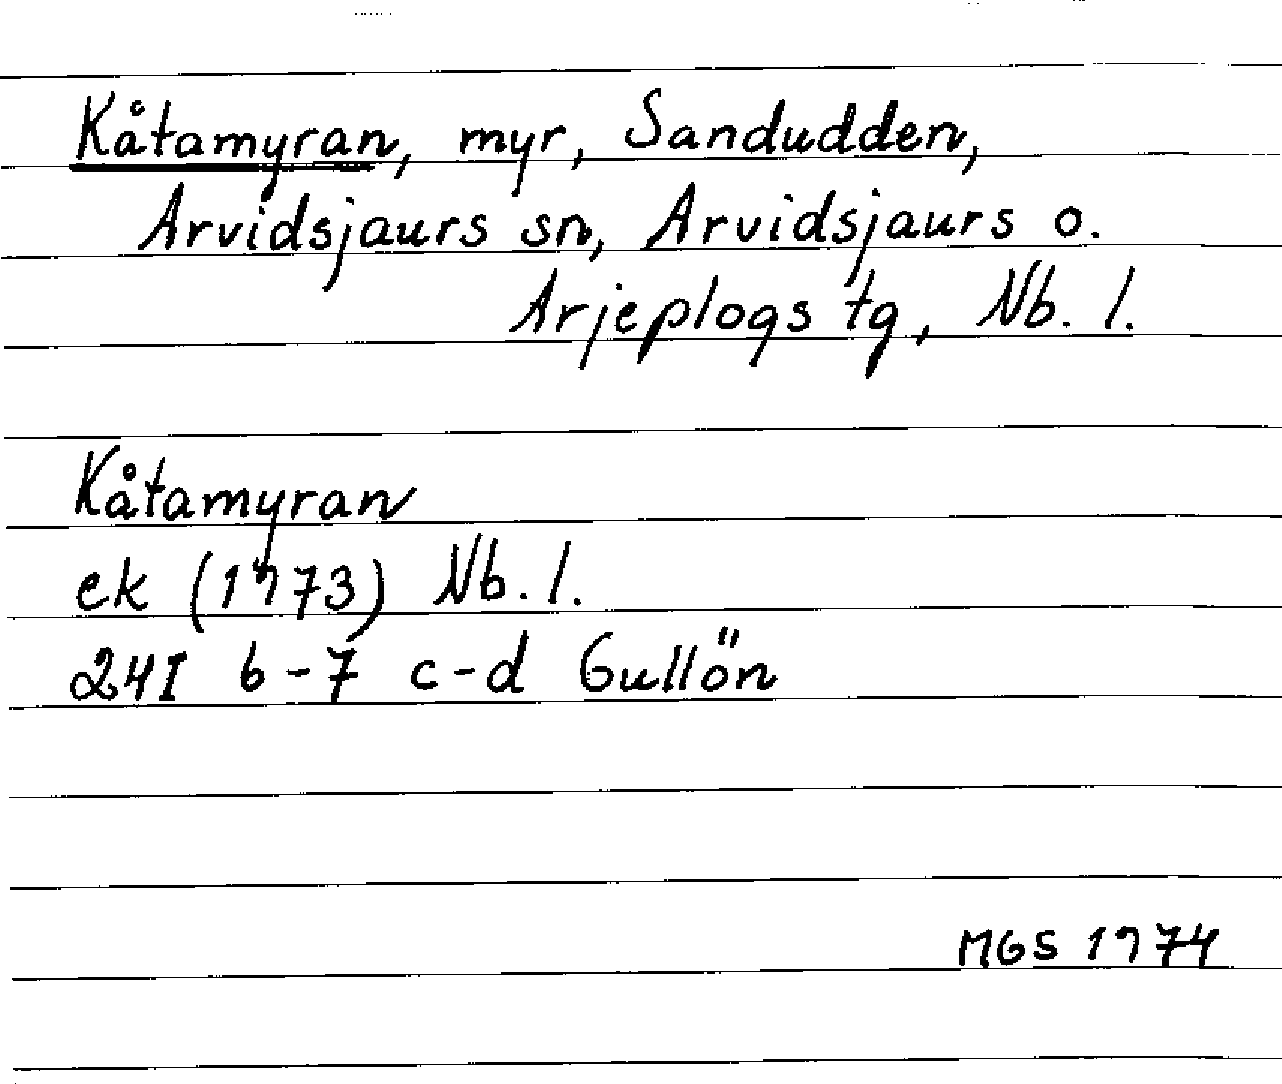 Kåtamyran, myr, Sandudden,
Arvidsjaurs sn, Arvidsjaurs o.
Arjeplogs tg, Nb. l.
Kåtamyran
ek (1973) Nb. l.
24I 6-7 c-d Gullön
MGS 1974